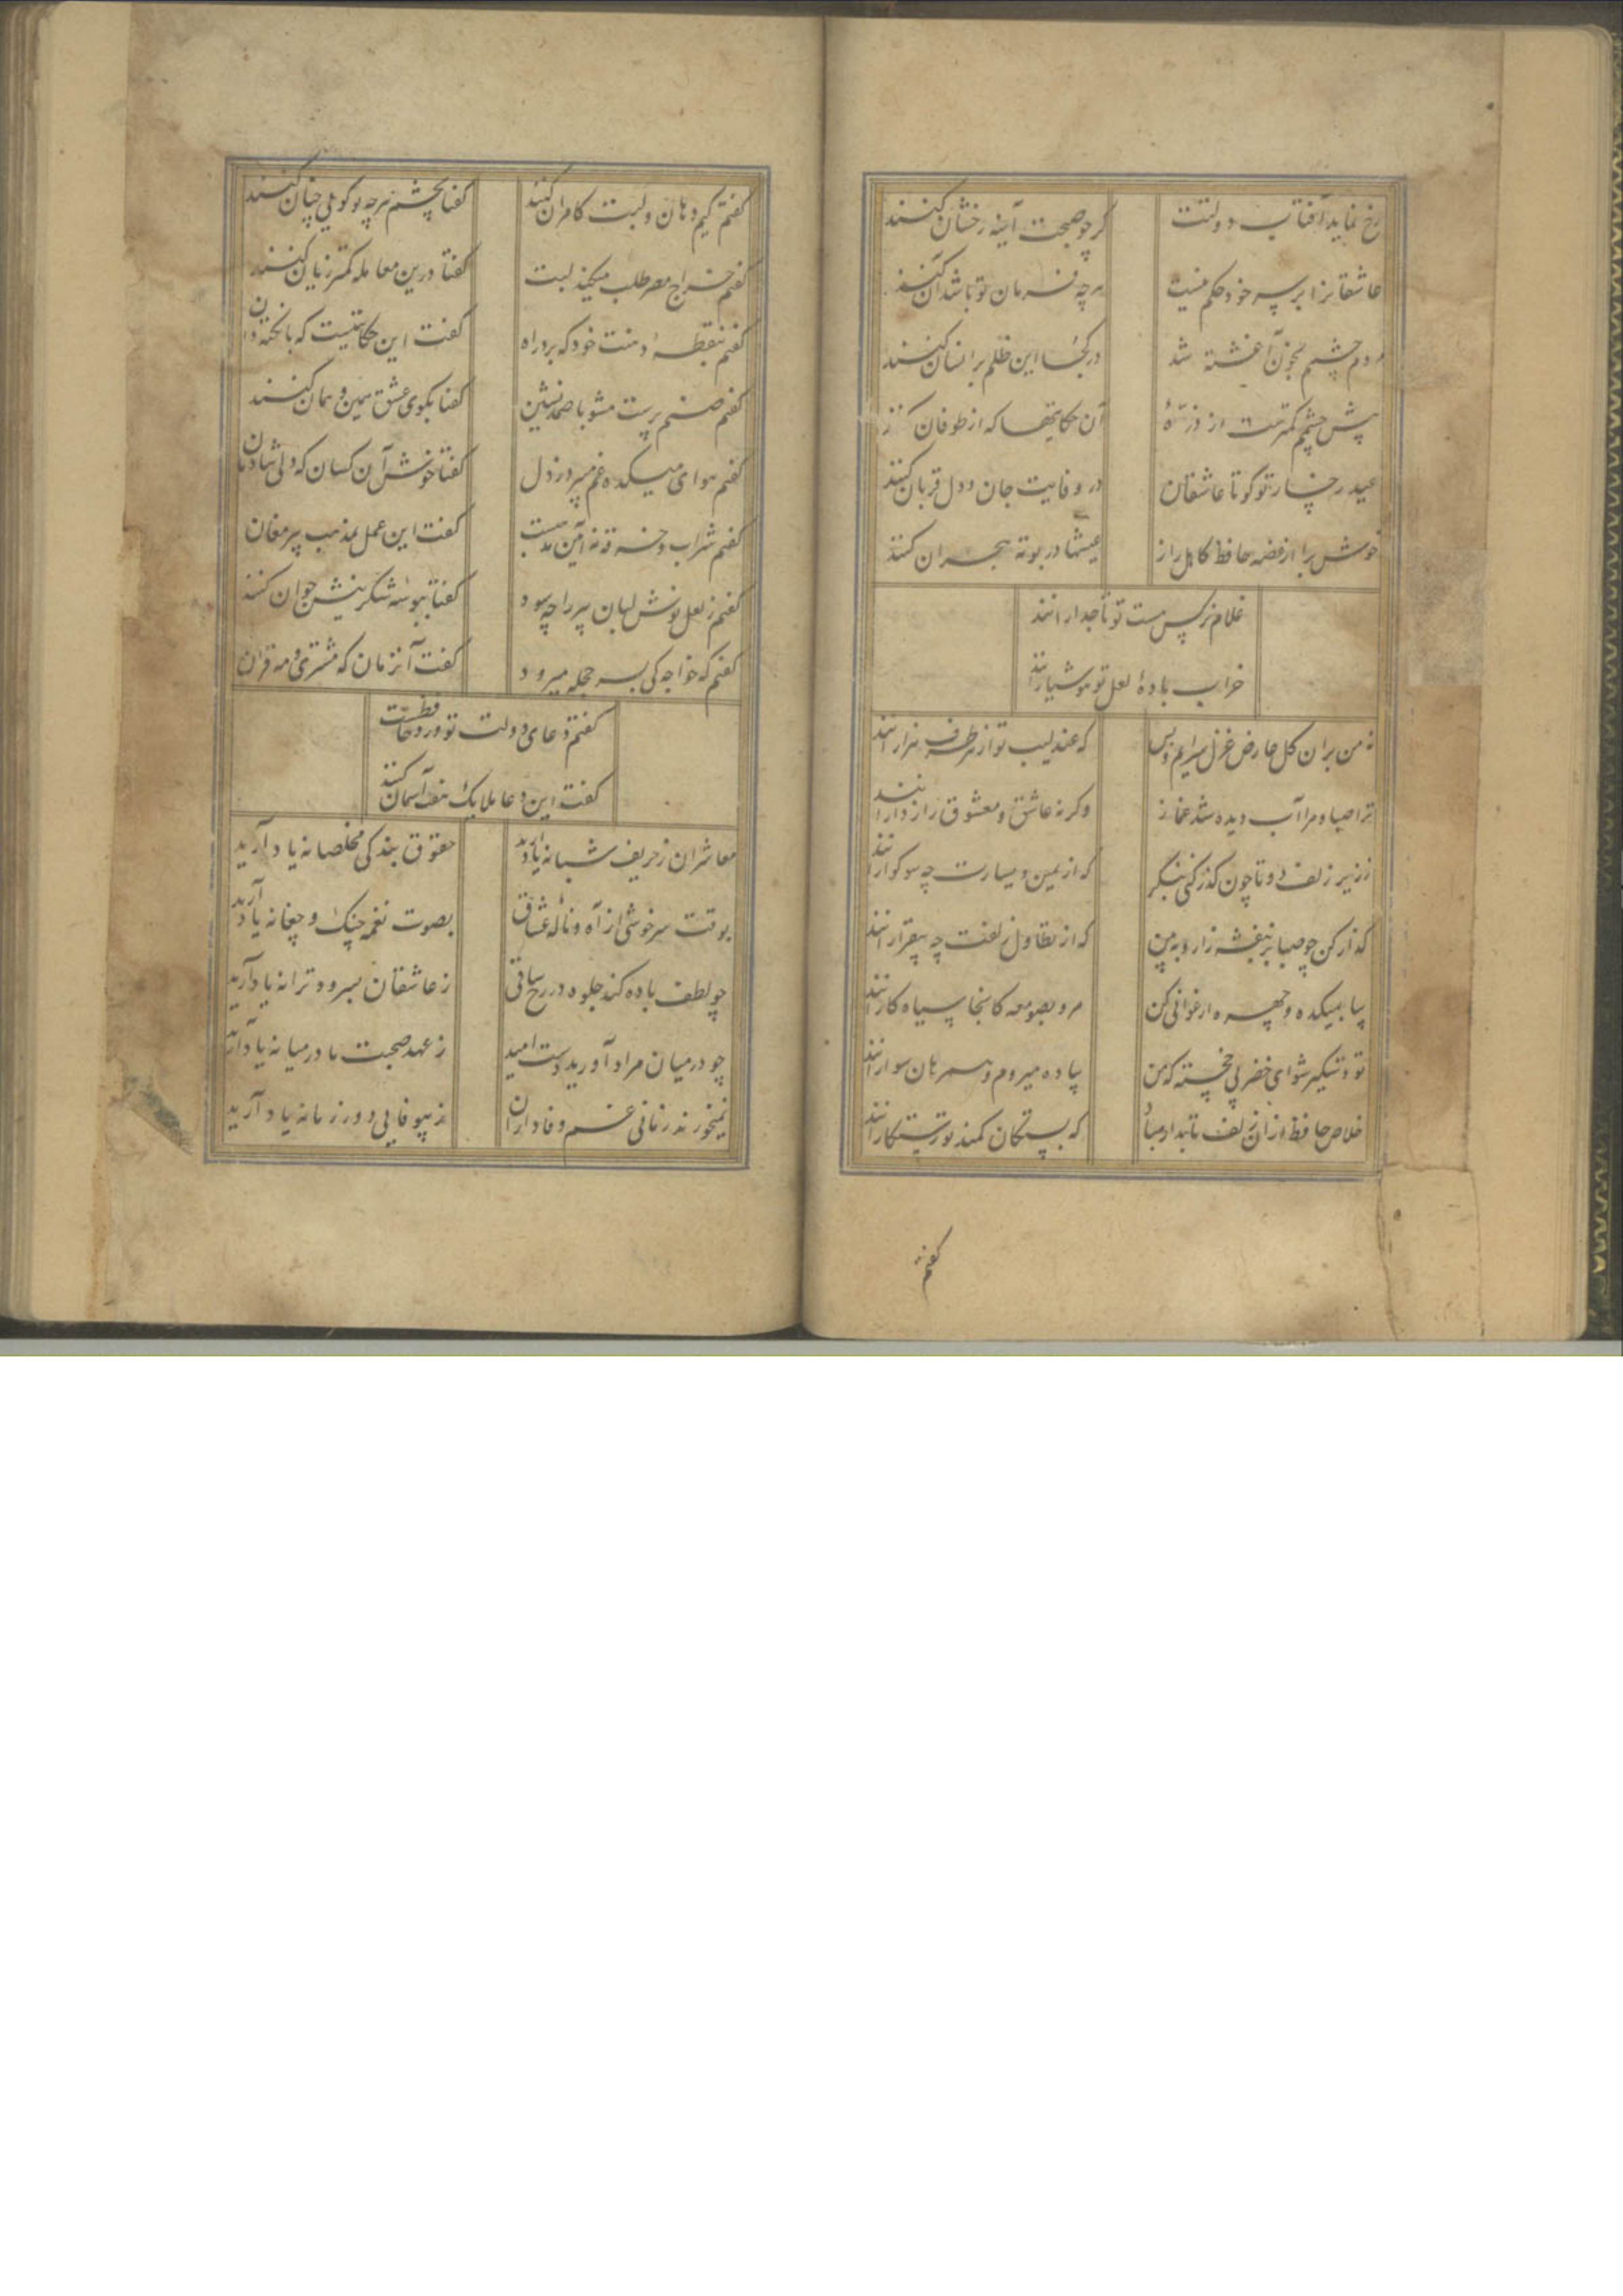 رخ نماید آفتاب دولتت گر چو صبحت آینه رخشان کنند
عاشقانرا بر سر خود حکم نیست هر چه فرمان تو باشد آن کنند
مردم چشمم بخون آغشته شد در کجا این ظلم بر انسان کنند
پیش چشمم کمترست از ذرّهٔ آن حکایتها که از طوفان کنند
عید رخسار تو کو تا عاشقان در وفایت جان و دل قربان کنند
خوش برا از غصه حافظ کاهل راز عیشها در بوته هجران کنند
غلام نرگس مست تو تاجدارانند
خراب بادهٔ لعل تو هوشیارانند
نه من بران گل عارض غزل سرایم و بس که عندلیب تو از هر طرف هزارانند
ترا صبا و مرا آب دیده شد غماز وگرنه عاشق و معشوق رازدارانند
ززیر زلف دوتا چون گذر کنی بنگر که از یمین و یسارت چه سوگوارانند
گذار کن چو صبا بر بنفشه زار و ببین که از تطاول زلفت چه بیقرارانند
بیا بمیکده و چهره ارغوانی کن مرو بصومعه کانجا سیاه کارانند
تو دستگیر شو ای خضر پی خجسته که من پیاده میروم و همرهان سوارانند
خلاص حافظ ازان زلف تابدار مباد که بستگان کمند تو رستگارانند
گفتم
گفتم کیم دهان و لبت کامران کنند گفتا بچشم هر چه تو گویی چنان کنند
گفتم خراج مصر طلب میکند لبت گفتا درین معامله کمتر زیان کنند
گفتم بنقطهٔ دهنت خود که برد راه گفت این حکایتیست که با نکته دان
گفتم صنم پرست مشو با صمد نشین گفتا بکوی عشق همین و همان کنند
گفتم هوای میکده غم میبرد ز دل گفتا خوش آن کسان که دلی شادمان
گفتم شراب و خرقه نه آیین مذهبست گفت این عمل بمذهب پیر مغان
گفتم ز لعل نوش لبان پیر را چه سود گفتا ببوسه شکرینش جوان کنند
گفتم که خواجه کی بسر حجله میرود گفت آنزمان که مشتری و مه قران
گفتم دعای دولت تو ورد حافظست
گفت این دعا ملایک هفت آسمان کنند
معاشران ز حریف شبانه یاد آرید حقوق بندگی مخلصانه یاد آرید
بوقت سرخوشی از آه و نالهٔ عشاق بصوت نغمه چنگ و چغانه یاد آرید
چو لطف باده کند جلوه در رخ ساقی ز عاشقان بسرود ترانه یاد آرید
چو در میان مراد آورید دست امید ز عهد صحبت ما در میانه یاد آرید
نمیخورند زمانی غم وفاداران ز بیوفایی دور زمانه یاد آرید